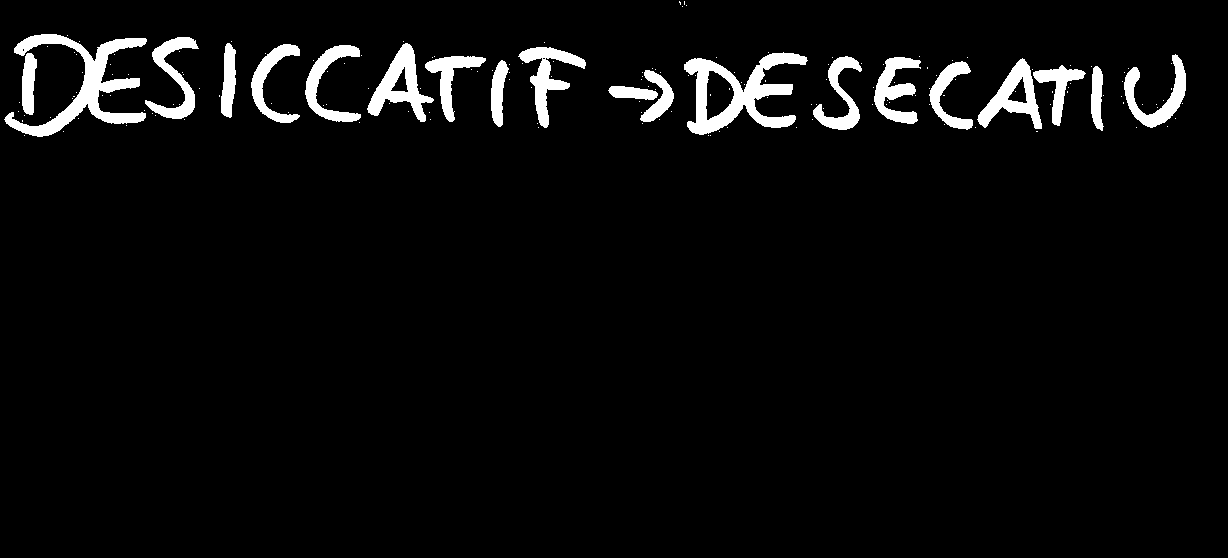 DESICCATIF → DESECATIU